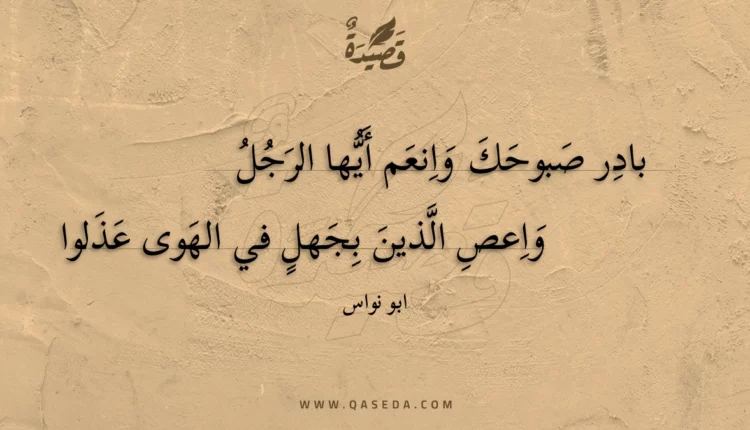 قَصِيْدَةٌ
بادِر صَبوحَكَ وَاِنعَم أَيُّها الرَجُلُ
وَاِعصِ الَّذينَ بِجَهلٍ في الهَوى عَذَلوا
ابو نواس
WWW.QASEDA.COM